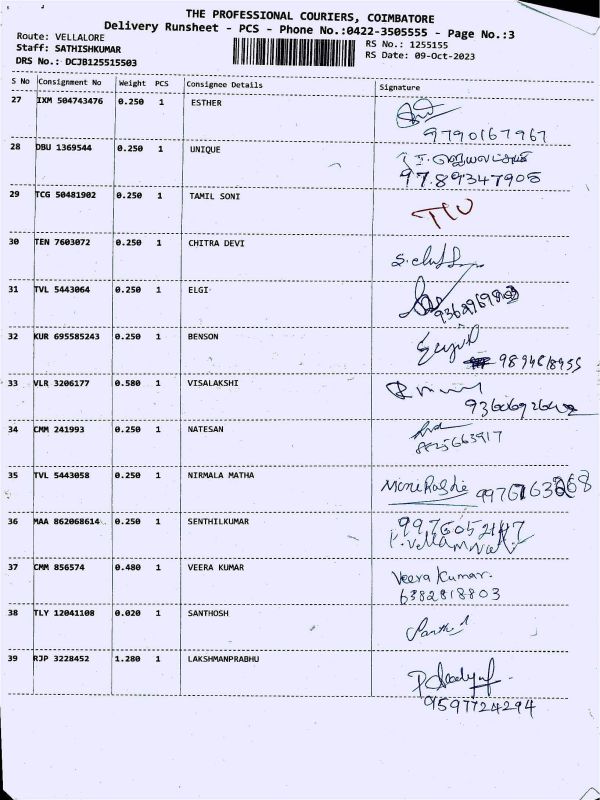 THE PROFESSIONAL COURIERS, COIMBATORE
Delivery Runsheet - PCS - Phone No.:0422-3505555 - Page No.:3
Route: VELLALORE
RS No.: 1255155
Staff: SATHISHKUMAR
RS Date: 09-Oct-2023
DRS No.: DCJB125515503
S No Consignment No Weight PCS Consignee Details Signature
27 IXM 504743476 0.250 1 ESTHER
9790167967
28 DBU 1369544 0.250 1 UNIQUE
97.89347905
29 TCG 50481902 0.250 1 TAMIL SONI
30 TEN 7603072 0.250 1 CHITRA DEVI
31 TVL 5443064 0.250 1 ELGI
32 KUR 695585243 0.250 1 BENSON
9894618955
33 VLR 3206177 0.580 1 VISALAKSHI
34 CMM 241993 0.250 1 NATESAN
8825663917
35 TVL 5443058 0.250 1 NIRMALA MATHA
36 MAA 862068614 0.250 1 SENTHILKUMAR
37 CMM 856574 0.480 1 VEERA KUMAR
Veera Kumar.
6382818803
38 TLY 12041108 0.020 1 SANTHOSH
39 RJP 3228452 1.280 1 LAKSHMANPRABHU
9597724294